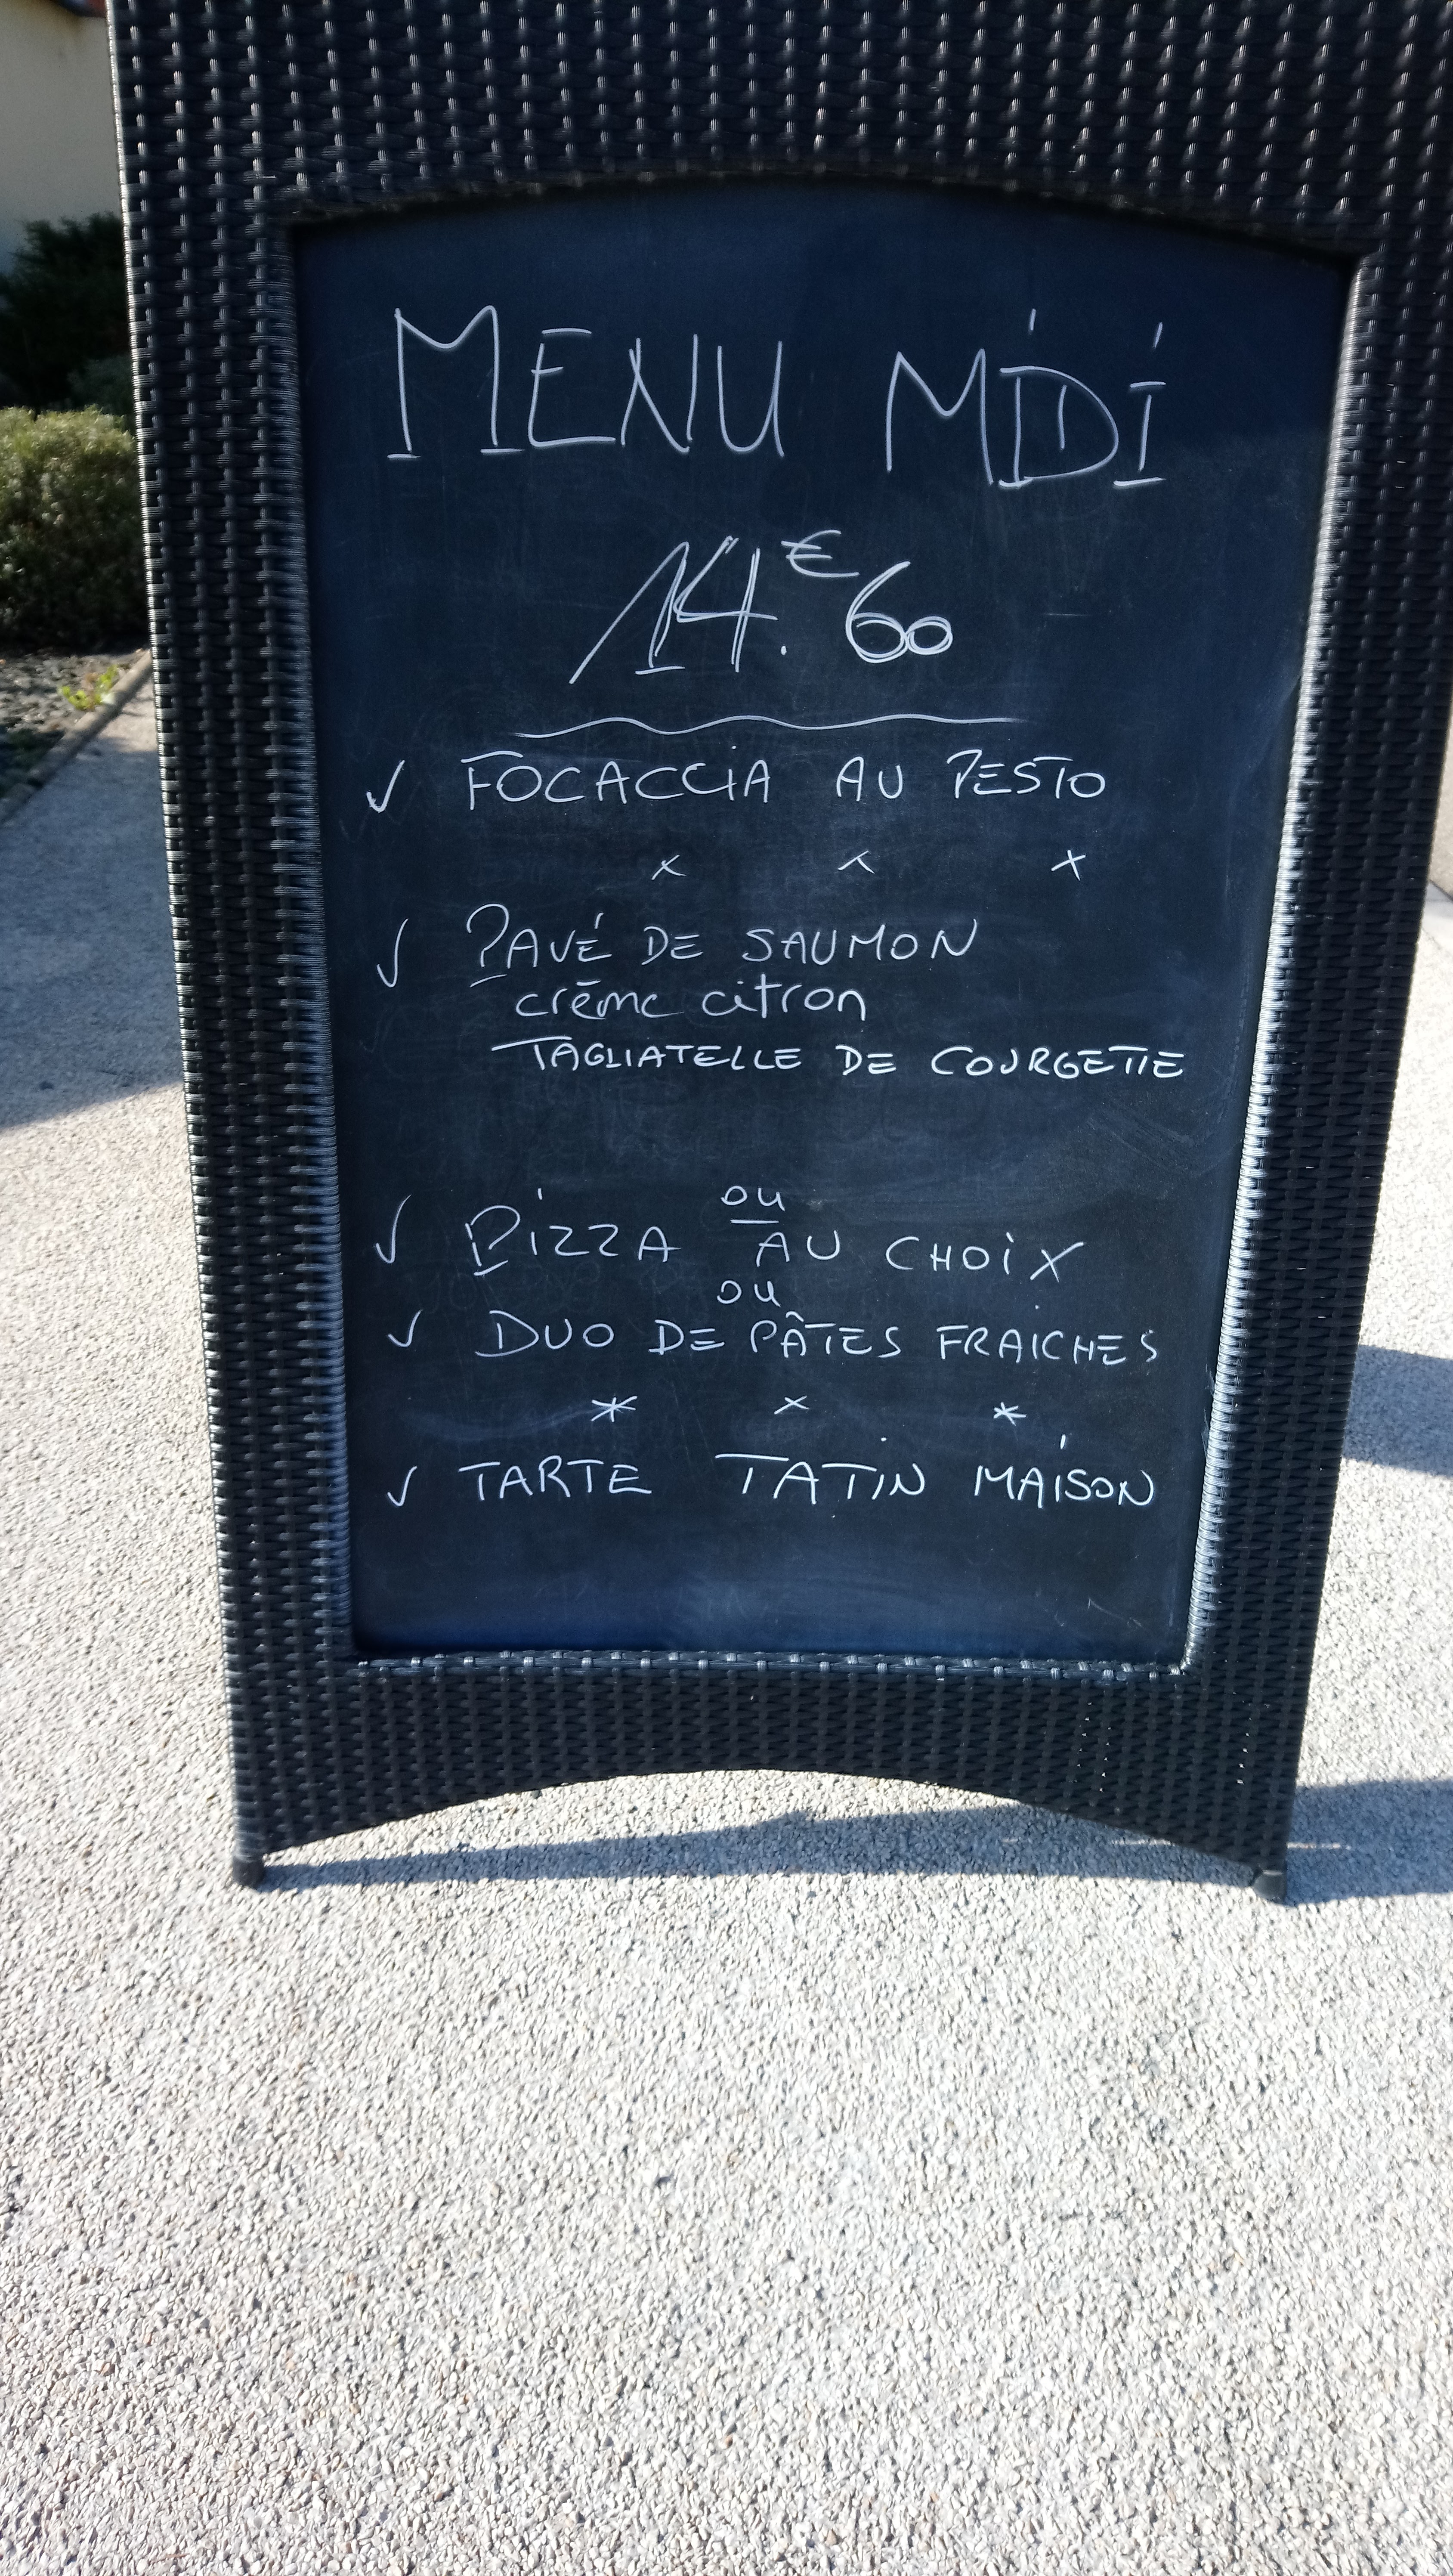 MENU MIDI
14.€60
✓ FOCACCIA AU PESTO
x x x
✓ PAVÉ DE SAUMON
crème citron
TAGLIATELLE DE COURGETTE
ou
✓ PIZZA AU CHOIX
ou
✓ DUO DE PÂTES FRAICHES
* x *
✓ TARTE TATIN MAISON